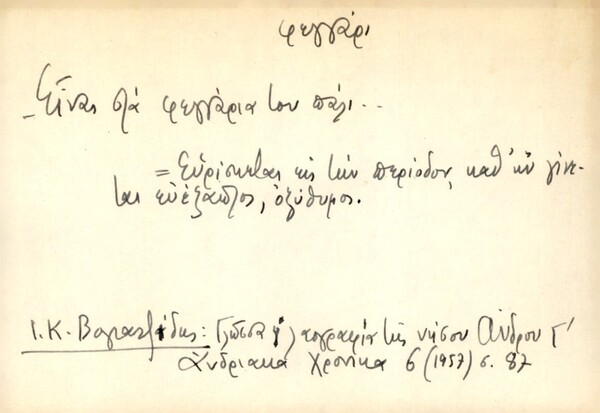 φεγγάρι
– Εἶναι στά φεγγάρια του πάλι..
= Εὑρίσκεται εἰς τὴν περίοδον, καθ' ἣν γίνε-
ται εὐέξαπτος, ὀξύθυμος.
Ι. Κ. Βογιατζίδης: Γλῶσσα καὶ λαογραφία τῆς νήσου Ἄνδρου Γ'
Ἀνδριακά Χρονικα 6 (1957) σ. 87